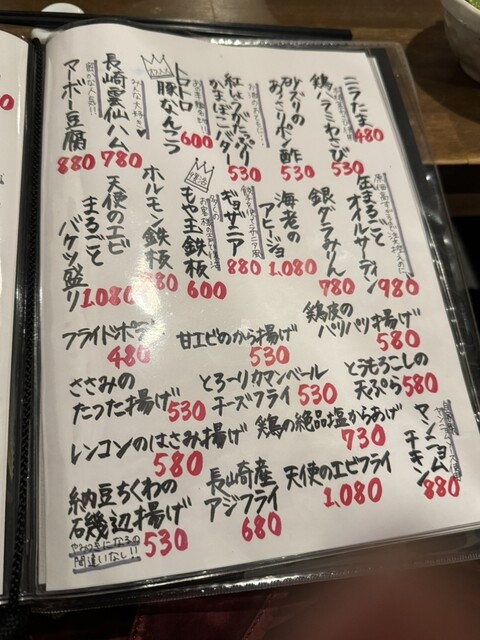 ニラたま
480
鶏ハラミわさび
530
砂ズリの
あっさりポン酢
530
紅しょうがたっぷり
かまぼこバター
530
トロトロ
豚なんこつ
600
みんな大好き
長崎雲仙ハム
780
マーボー豆腐
880
缶まるごと
オイルサーディン
980
銀ダラみりん
780
海老の
アヒージョ
1,080
ギョザニア
880
復活
もや玉鉄板
600
ホルモン鉄板
780
天使のエビ
まるごと
バケツ盛り
1,080
フライドポテト
480
甘エビのから揚げ
530
鶏皮の
パリパリ揚げ
580
ささみの
たつた揚げ
530
とろ〜りカマンベール
チーズフライ
530
とうもろこしの
天ぷら
580
レンコンのはさみ揚げ
580
鶏の絶品塩からあげ
730
ヤンニョム
チキン
880
納豆ちくわの
石磯辺揚げ
530
やみつきになるの
間違いなし!!
長崎産
アジフライ
680
天使のエビフライ
1,080